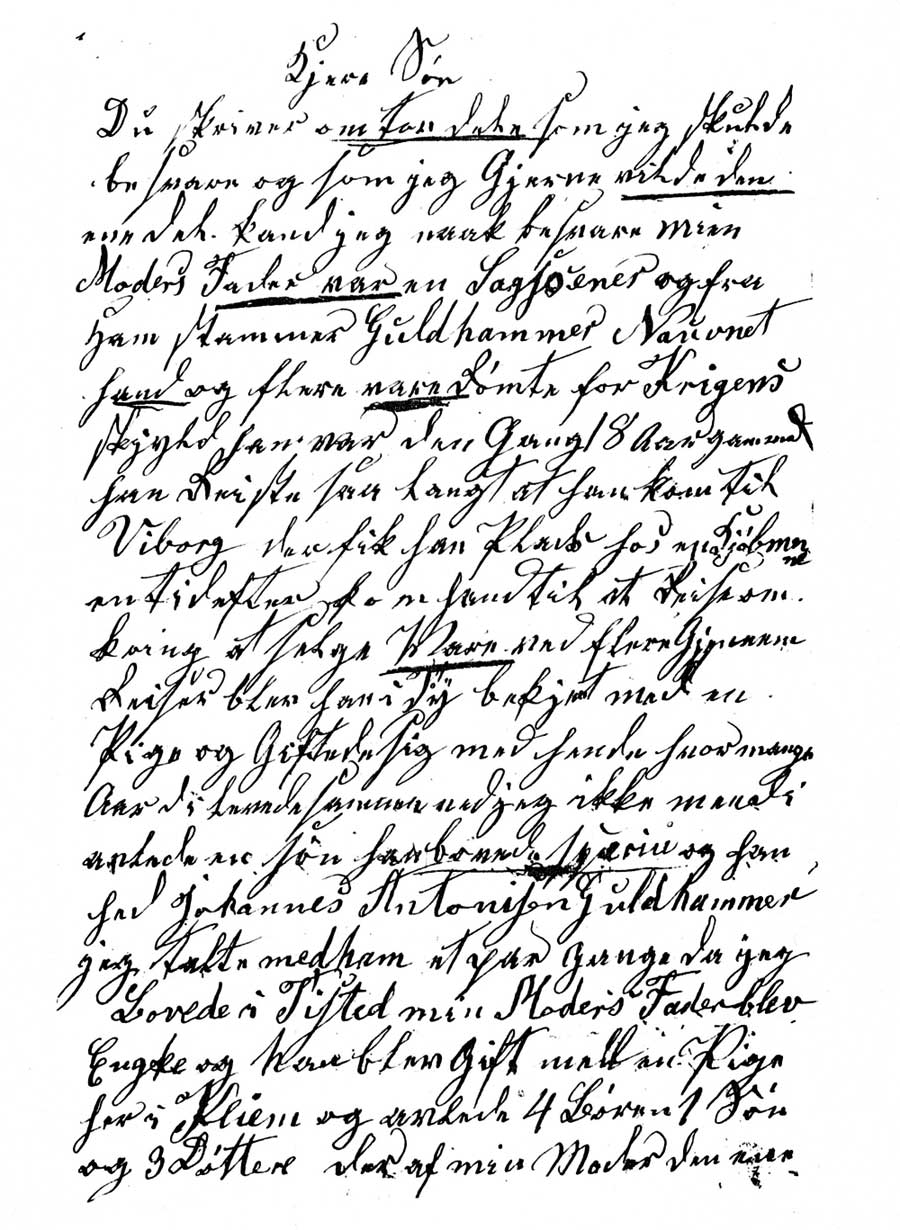 Kjere Søn
Du skriver om to dele som jeg skulde
besvare og som jeg Gjerne vilde den
ene del. kand jeg naak besvare Min
Moders Fader var en Sagsøener og fra
Ham stammer Guldhammer Nauvnet
hand og flere vare Dømte for Krigens
skjyld han var den Gang 18 Aar gammel
han Reiste saa langt at han kom til
Viborg der fik han Plads hos en Kjøbman
en tid efter kom hand til at Reise om
kring at selge Ware ved flere Gjennem
Reiser blev han i Ty bekjent med en
Pige og Giftede sig med hende hvor mange
Aar di levede sammen ved jeg ikke men di
avlede en søn han boede og han
hed Johannes Antonisen Guldhammer
jeg talte med ham et par Gange da jeg
Bovede i Tisted min Moders Fader blev
Engke og han blev Gift med en Pige
her i Kliem og avlede 4 Børen 1 Søn
og 3 Døttere der af min Moder den ene